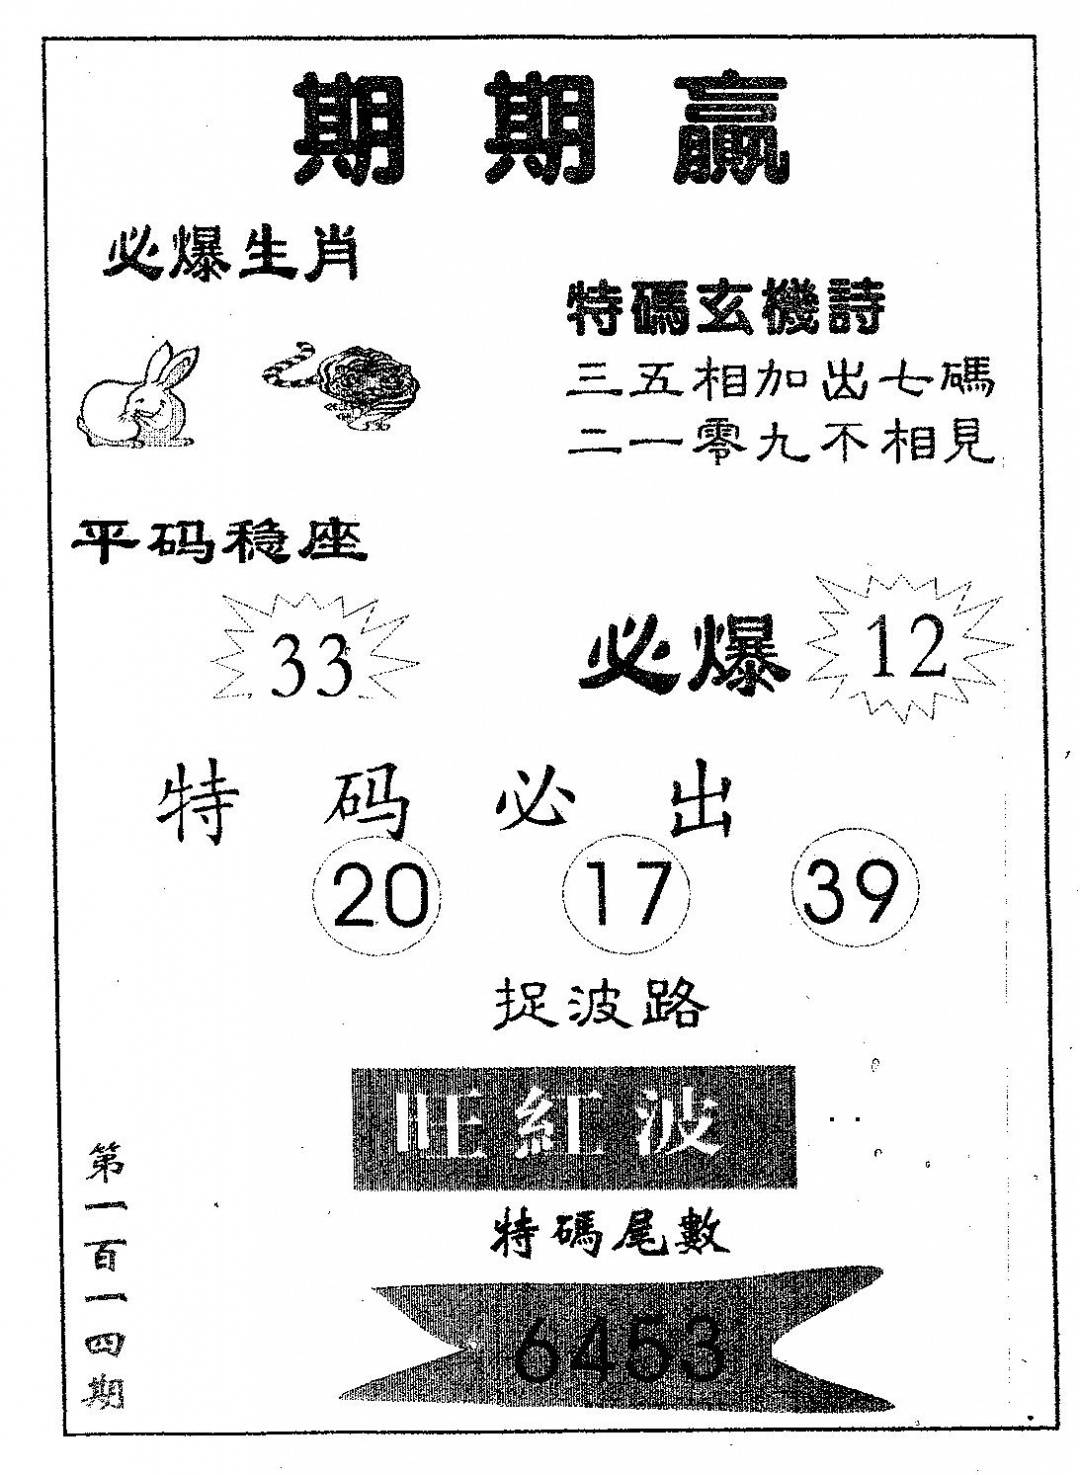 期期赢
必爆生肖
特碼玄機詩
三五相加出七碼
二一零九不相見
平码稳座
33
必爆 12
特码必出
20 17 39
捉波路
旺紅波
特碼尾數
6453
第一百一四期